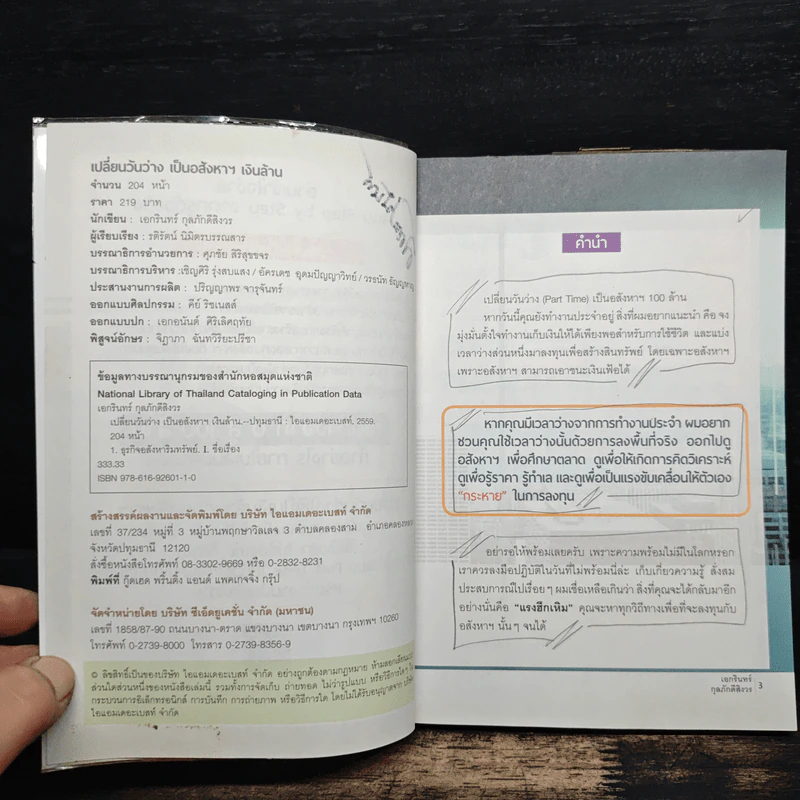 เปลี่ยนวันว่าง เป็นอสังหาฯ เงินล้าน
จำนวน 204 หน้า
ราคา 219 บาท
นักเขียน : เอกรินทร์ กุลภักดีสิงวร
ผู้เรียบเรียง : รติรัตน์ นิมิตรบรรณสาร
บรรณาธิการอำนวยการ : ศุภชัย สิริสุขชจร
บรรณาธิการบริหาร :เชิญศิริ รุ่งสบแสง / อัครเดช อุดมปัญญาวิทย์ / วรธนัท
ประสานงานการผลิต : ปริญญาพร จารุจันทร์
ออกแบบศิลปกรรม : คีย์ ริชเนสส์
ออกแบบปก : เอกอนันต์ ศิริเลิศฤทัย
พิสูจน์อักษร : จิฎาภา ฉันทวิริยะปรีชา
ข้อมูลทางบรรณานุกรมของสำนักหอสมุดแห่งชาติ
National Library of Thailand Cataloging in Publication Data
เอกรินทร์ กุลภักดีสิงวร
เปลี่ยนวันว่าง เป็นอสังหาฯ เงินล้าน.--ปทุมธานี : ไอแอมเดอะเบสท์, 2559.
204 หน้า
1. ธุรกิจอสังหาริมทรัพย์. I. ชื่อเรื่อง
333.33
ISBN 978-616-92601-1-0
สร้างสรรค์ผลงานและจัดพิมพ์โดย บริษัท ไอแอมเดอะเบสท์ จำกัด
เลขที่ 37/234 หมู่ที่ 3 หมู่บ้านพฤกษาวิลเลจ 3 ตำบลคลองสาม อำเภอคลองหลวง
จังหวัดปทุมธานี 12120
สั่งซื้อหนังสือโทรศัพท์ 08-3302-9669 หรือ 0-2832-8231
พิมพ์ที่ กู๊ดเฮด พริ้นติ้ง แอนด์ แพคเกจจิ้ง กรุ๊ป
จัดจำหน่ายโดย บริษัท ซีเอ็ดยูเคชั่น จำกัด (มหาชน)
เลขที่ 1858/87-90 ถนนบางนา-ตราด แขวงบางนา เขตบางนา กรุงเทพฯ 10260
โทรศัพท์ 0-2739-8000 โทรสาร 0-2739-8356-9
© ลิขสิทธิ์เป็นของบริษัท ไอแอมเดอะเบสท์ จำกัด อย่างถูกต้องตามกฎหมาย ห้ามลอกเลียนแบบ
ส่วนใดส่วนหนึ่งของหนังสือเล่มนี้ รวมทั้งการจัดเก็บ ถ่ายทอด ไม่ว่ารูปแบบ หรือวิธีการใดๆ
กระบวนการอิเล็กทรอนิกส์ การบันทึก การถ่ายภาพ หรือวิธีการใด โดยไม่ได้รับอนุญาตจาก บริษัท
ไอแอมเดอะเบสท์ จำกัด
คำนำ
เปลี่ยนวันว่าง (Part Time) เป็นอสังหาฯ 100 ล้าน
หากวันนี้คุณยังทำงานประจำอยู่ สิ่งที่ผมอยากแนะนำ คือ จง
มุ่งมั่นตั้งใจทำงานเก็บเงินให้ได้เพียงพอสำหรับการใช้ชีวิต และแบ่ง
เวลาว่างส่วนหนึ่งมาลงทุนเพื่อสร้างสินทรัพย์ โดยเฉพาะอสังหาฯ
เพราะอสังหาฯ สามารถเอาชนะเงินเฟ้อได้
หากคุณมีเวลาว่างจากการทำงานประจำ ผมอยาก
ชวนคุณใช้เวลาว่างนั้นด้วยการลงพื้นที่จริง ออกไปดู
อสังหาฯ เพื่อศึกษาตลาด ดูเพื่อให้เกิดการคิดวิเคราะห์
ดูเพื่อรู้ราคา รู้ทำเล และดูเพื่อเป็นแรงขับเคลื่อนให้ตัวเอง
“กระหาย” ในการลงทุน
อย่ารอให้พร้อมเลยครับ เพราะความพร้อมไม่มีในโลกหรอก
เราควรลงมือปฏิบัติในวันที่ไม่พร้อมนี่ล่ะ เก็บเกี่ยวความรู้ สั่งสม
ประสบการณ์ไปเรื่อยๆ ผมเชื่อเหลือเกินว่า สิ่งที่คุณจะได้กลับมาอีก
อย่างนั่นคือ “แรงฮึกเหิม” คุณจะหาทุกวิถีทางเพื่อที่จะลงทุนกับ
อสังหาฯ นั้นๆ จนได้
เอกรินทร์
กุลภักดีสิงวร 3